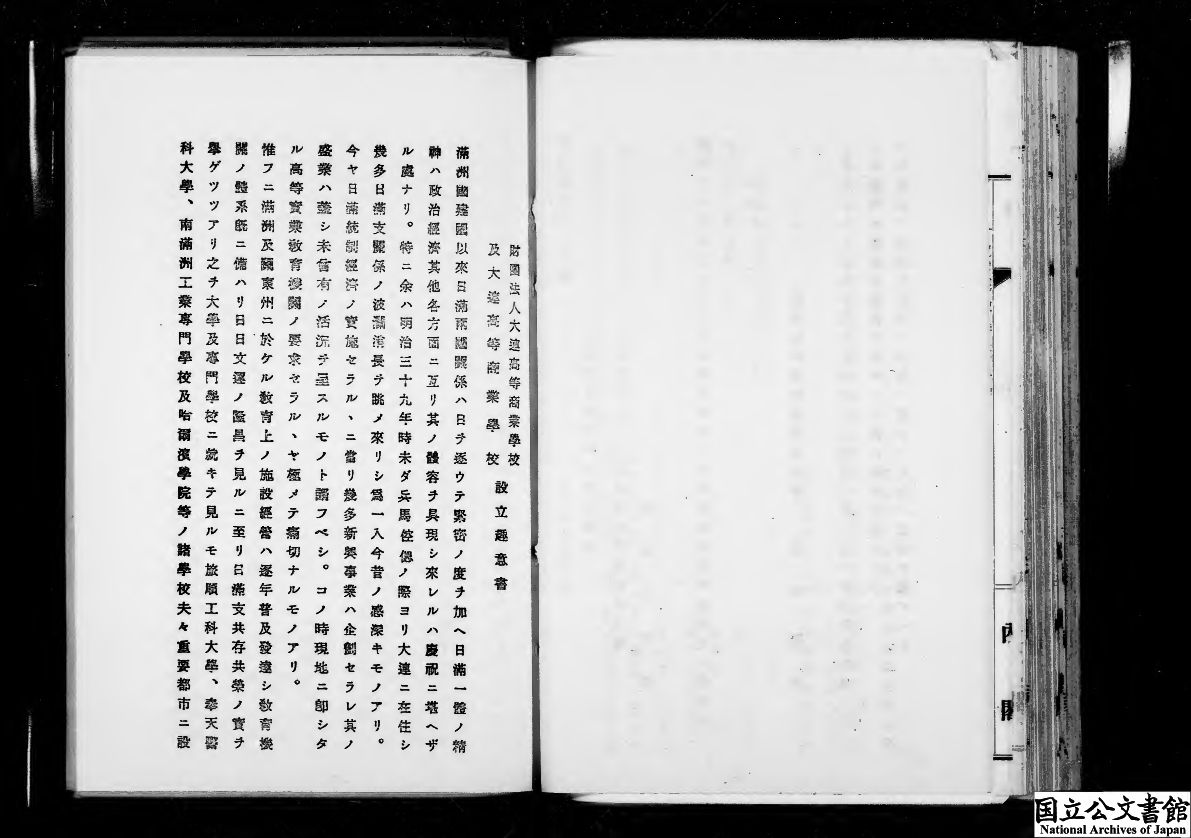 財團法人大連高等商業學校
及大連高等商業學校
設立趣意書
滿洲國建國以來日滿兩國關係ハ日ヲ逐ウテ緊密ノ度ヲ加ヘ日滿一體ノ精
神ハ政治經濟其他各方面ニ亙リ其ノ體容ヲ具現シ來レルハ慶祝ニ堪ヘザ
ル處ナリ。特ニ余ハ明治三十九年時未ダ兵馬倥偬ノ際ヨリ大連ニ在住シ
幾多日滿支關係ノ波瀾消長ヲ眺メ來リシ爲一入今昔ノ感深キモノアリ。
今ヤ日滿統制經濟ノ實施セラル、ニ當リ幾多新興事業ハ企劃セラレ其ノ
盛業ハ蓋シ未曾有ノ活況ヲ呈スルモノト謂フベシ。コノ時現地ニ卽シタ
ル高等實業敎育機關ノ要求セラル、ヤ極メテ痛切ナルモノアリ。
惟フニ滿洲及關東州ニ於ケル敎育上ノ施設經營ハ逐年普及發達シ敎育機
關ノ體系旣ニ備ハリ日日文運ノ隆昌ヲ見ルニ至リ日滿支共存共榮ノ實ヲ
擧ゲツツアリ之ヲ大學及專門學校ニ就キテ見ルモ旅順工科大學、奉天醫
科大學、南滿洲工業專門學校及哈爾濱學院等ノ諸學校夫々重要都市ニ設
內閣
国立公文書館
National Archives of Japan